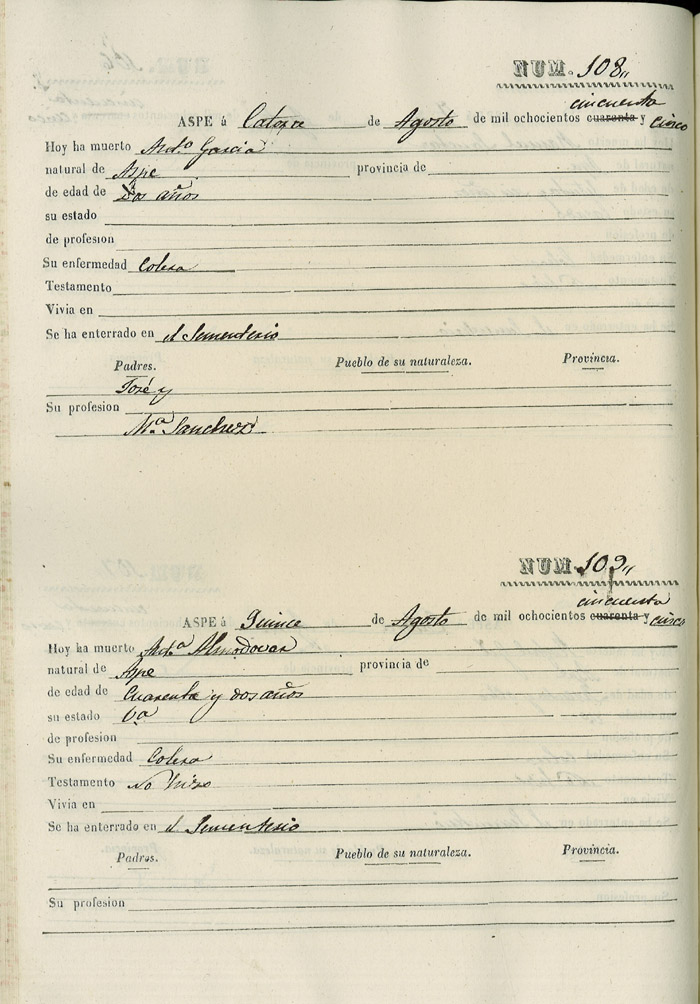 NUM. 108,,
cincuenta
ASPE á Catorce de Agosto de mil ochocientos cuarenta y cinco
Hoy ha muerto Ant.º Garcia
natural de Aspe provincia de
de edad de Dos años
su estado
de profesion
Su enfermedad Colera
Testamento
Vivia en
Se ha enterrado en el Sementerio
Padres. Pueblo de su naturaleza. Provincia.
José y
Su profesion
M.ª Sanchez
NUM. 109,,
cincuenta
ASPE á Quince de Agosto de mil ochocientos cuarenta y cinco
Hoy ha muerto Ant.ª Almodovar
natural de Aspe provincia de
de edad de Cuarenta y dos años
su estado V.ª
de profesion
Su enfermedad Colera
Testamento No hizo
Vivia en
Se ha enterrado en el Sementerio
Padres. Pueblo de su naturaleza. Provincia.
Su profesion